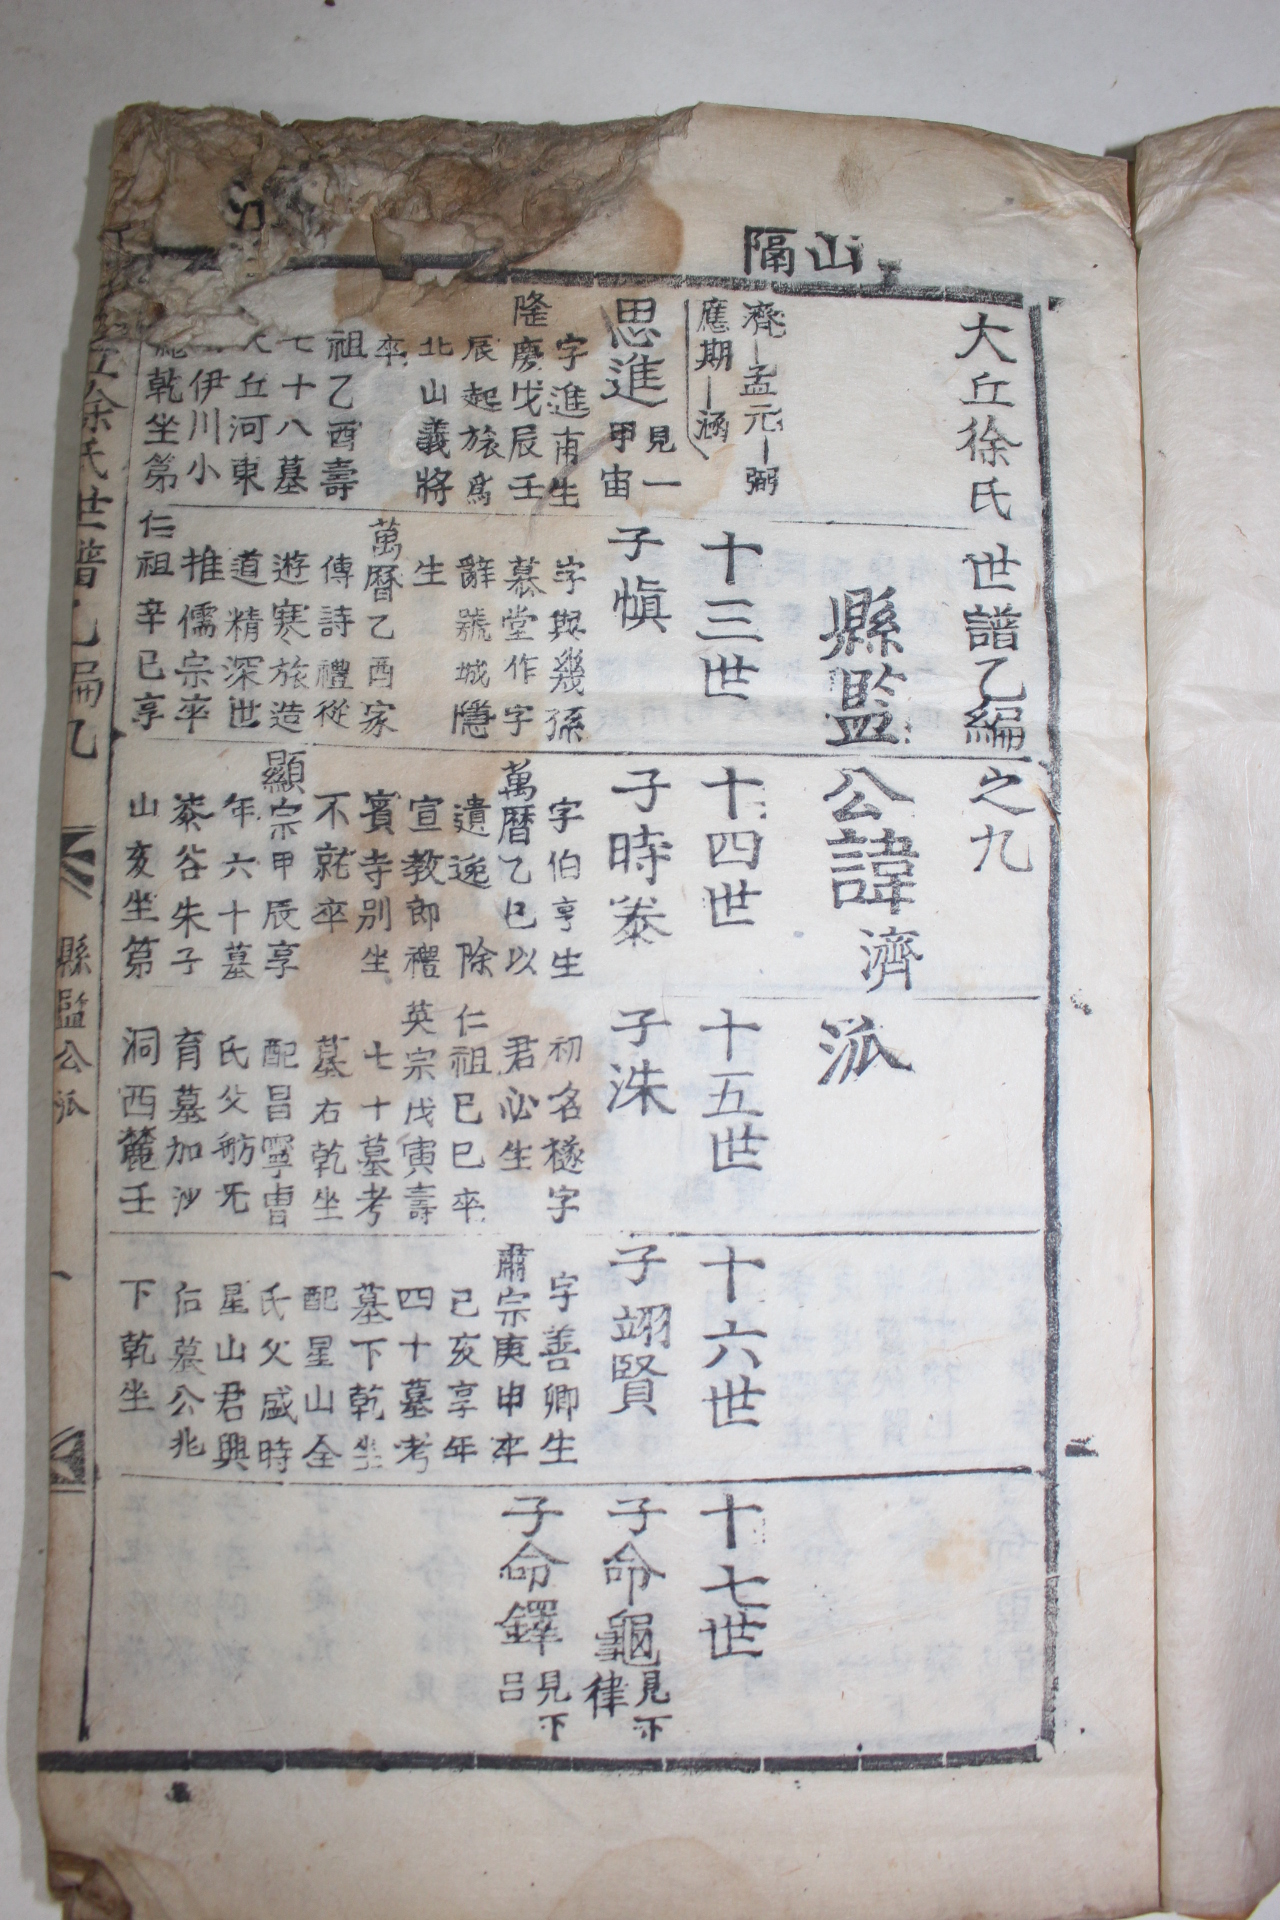 山隔
大丘徐氏世譜乙編之九
縣監公諱濟派
濟―孟元―弼
應期―涵
十三世
十四世
十五世
十六世
十七世
思進
見一
甲宙
字進甫生
隆慶戊辰壬
辰起旅爲
北山義將
卒
祖乙酉壽
七十八墓
丘河東
伊川小
乾坐第
子愼
字與幾孫
慕堂作字
辭號城隱
生
萬曆乙酉家
傳詩禮從
遊寒旅造
道精深世
推儒宗卒
仁祖辛巳享
子時泰
字伯亨生
萬曆乙巳以
遺逸除
宣教郎禮
賓寺別坐
不就卒
顯宗甲辰享
年六十墓
漆谷朱子
山亥坐第
子洙
初名檖字
君必生
仁祖己巳卒
英宗戊寅壽
七十墓考
墓右乾坐
配昌寧曺
氏父舫旡
育墓加沙
洞西麓壬
子翊賢
字善卿生
肅宗庚申卒
己亥享年
四十墓考
墓下乾坐
配星山全
氏父盛時
星山君興
佑墓公兆
下乾坐
子命龜
見下
律
子命鐸
見下
呂
徐氏世譜乙編九
縣監公派
一